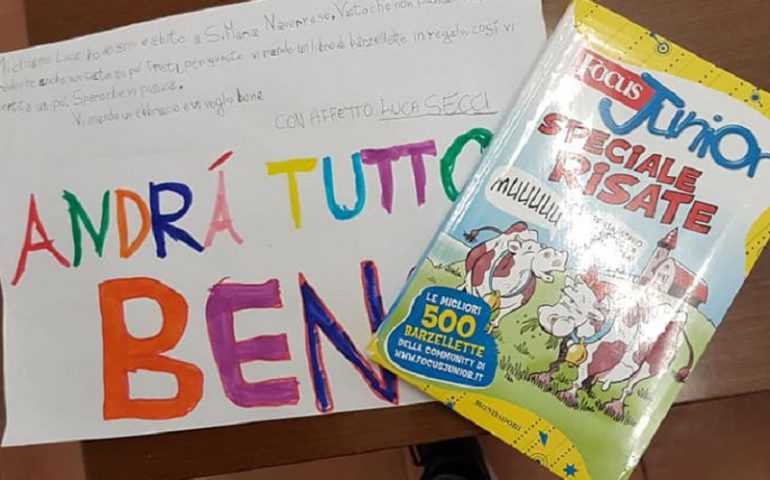 Mi chiamo Luca ho anni e abito a S. Maria Navarrese. Visto che non
anche voi siete un po' tristi, per questo vi mando un libro di barzellette in regalo, così vi
un po'. Spero che vi piaccia.
Vi mando un abbraccio e vi voglio bene
CON AFFETTO LUCA SECCI
ANDRÁ TUTTO
BEN
FOCUS
Junior
SPECIALE
RISATE
MUUUUU
LE MIGLIORI
500
BARZELLETTE
DELLA COMMUNITY DI
WWW.FOCUSJUNIOR.IT
MONDADORI